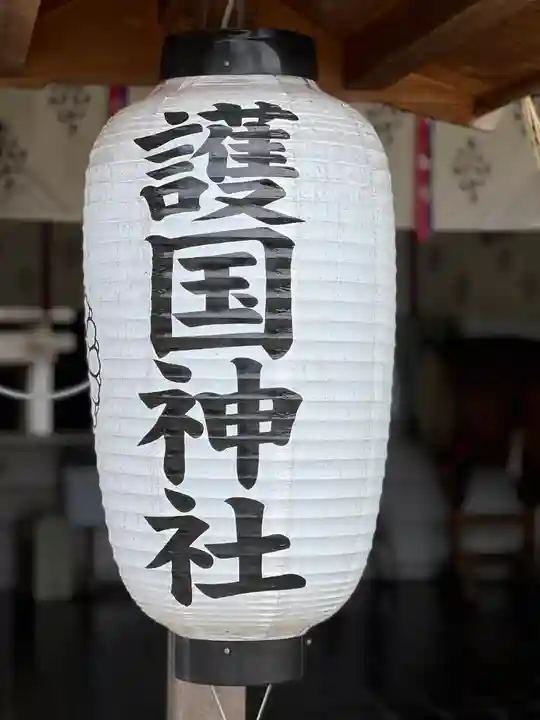 護国神社